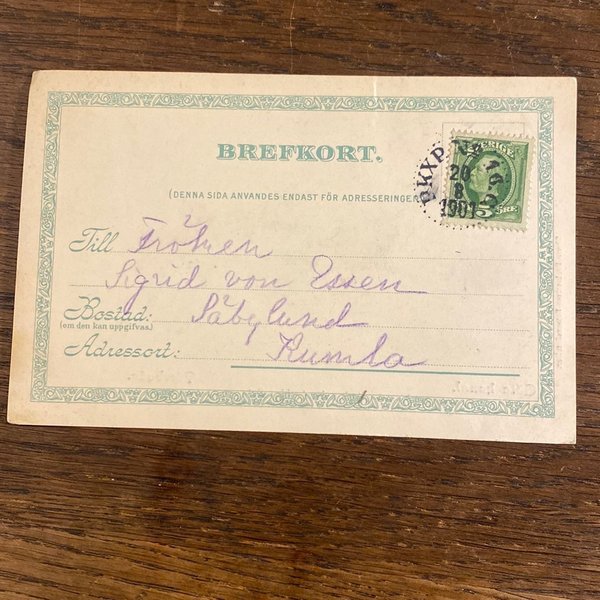 BREFKORT.
(DENNA SIDA ANVANDES ENDAST FÖR ADRESSERINGEN
SVERIGE
5 ÖRE
PKXP
20
8
1901
Till Fröken
Sigrid von Essen
Bostad: Säbylund
(om den kan uppgifvas)
Adressort: Kumla